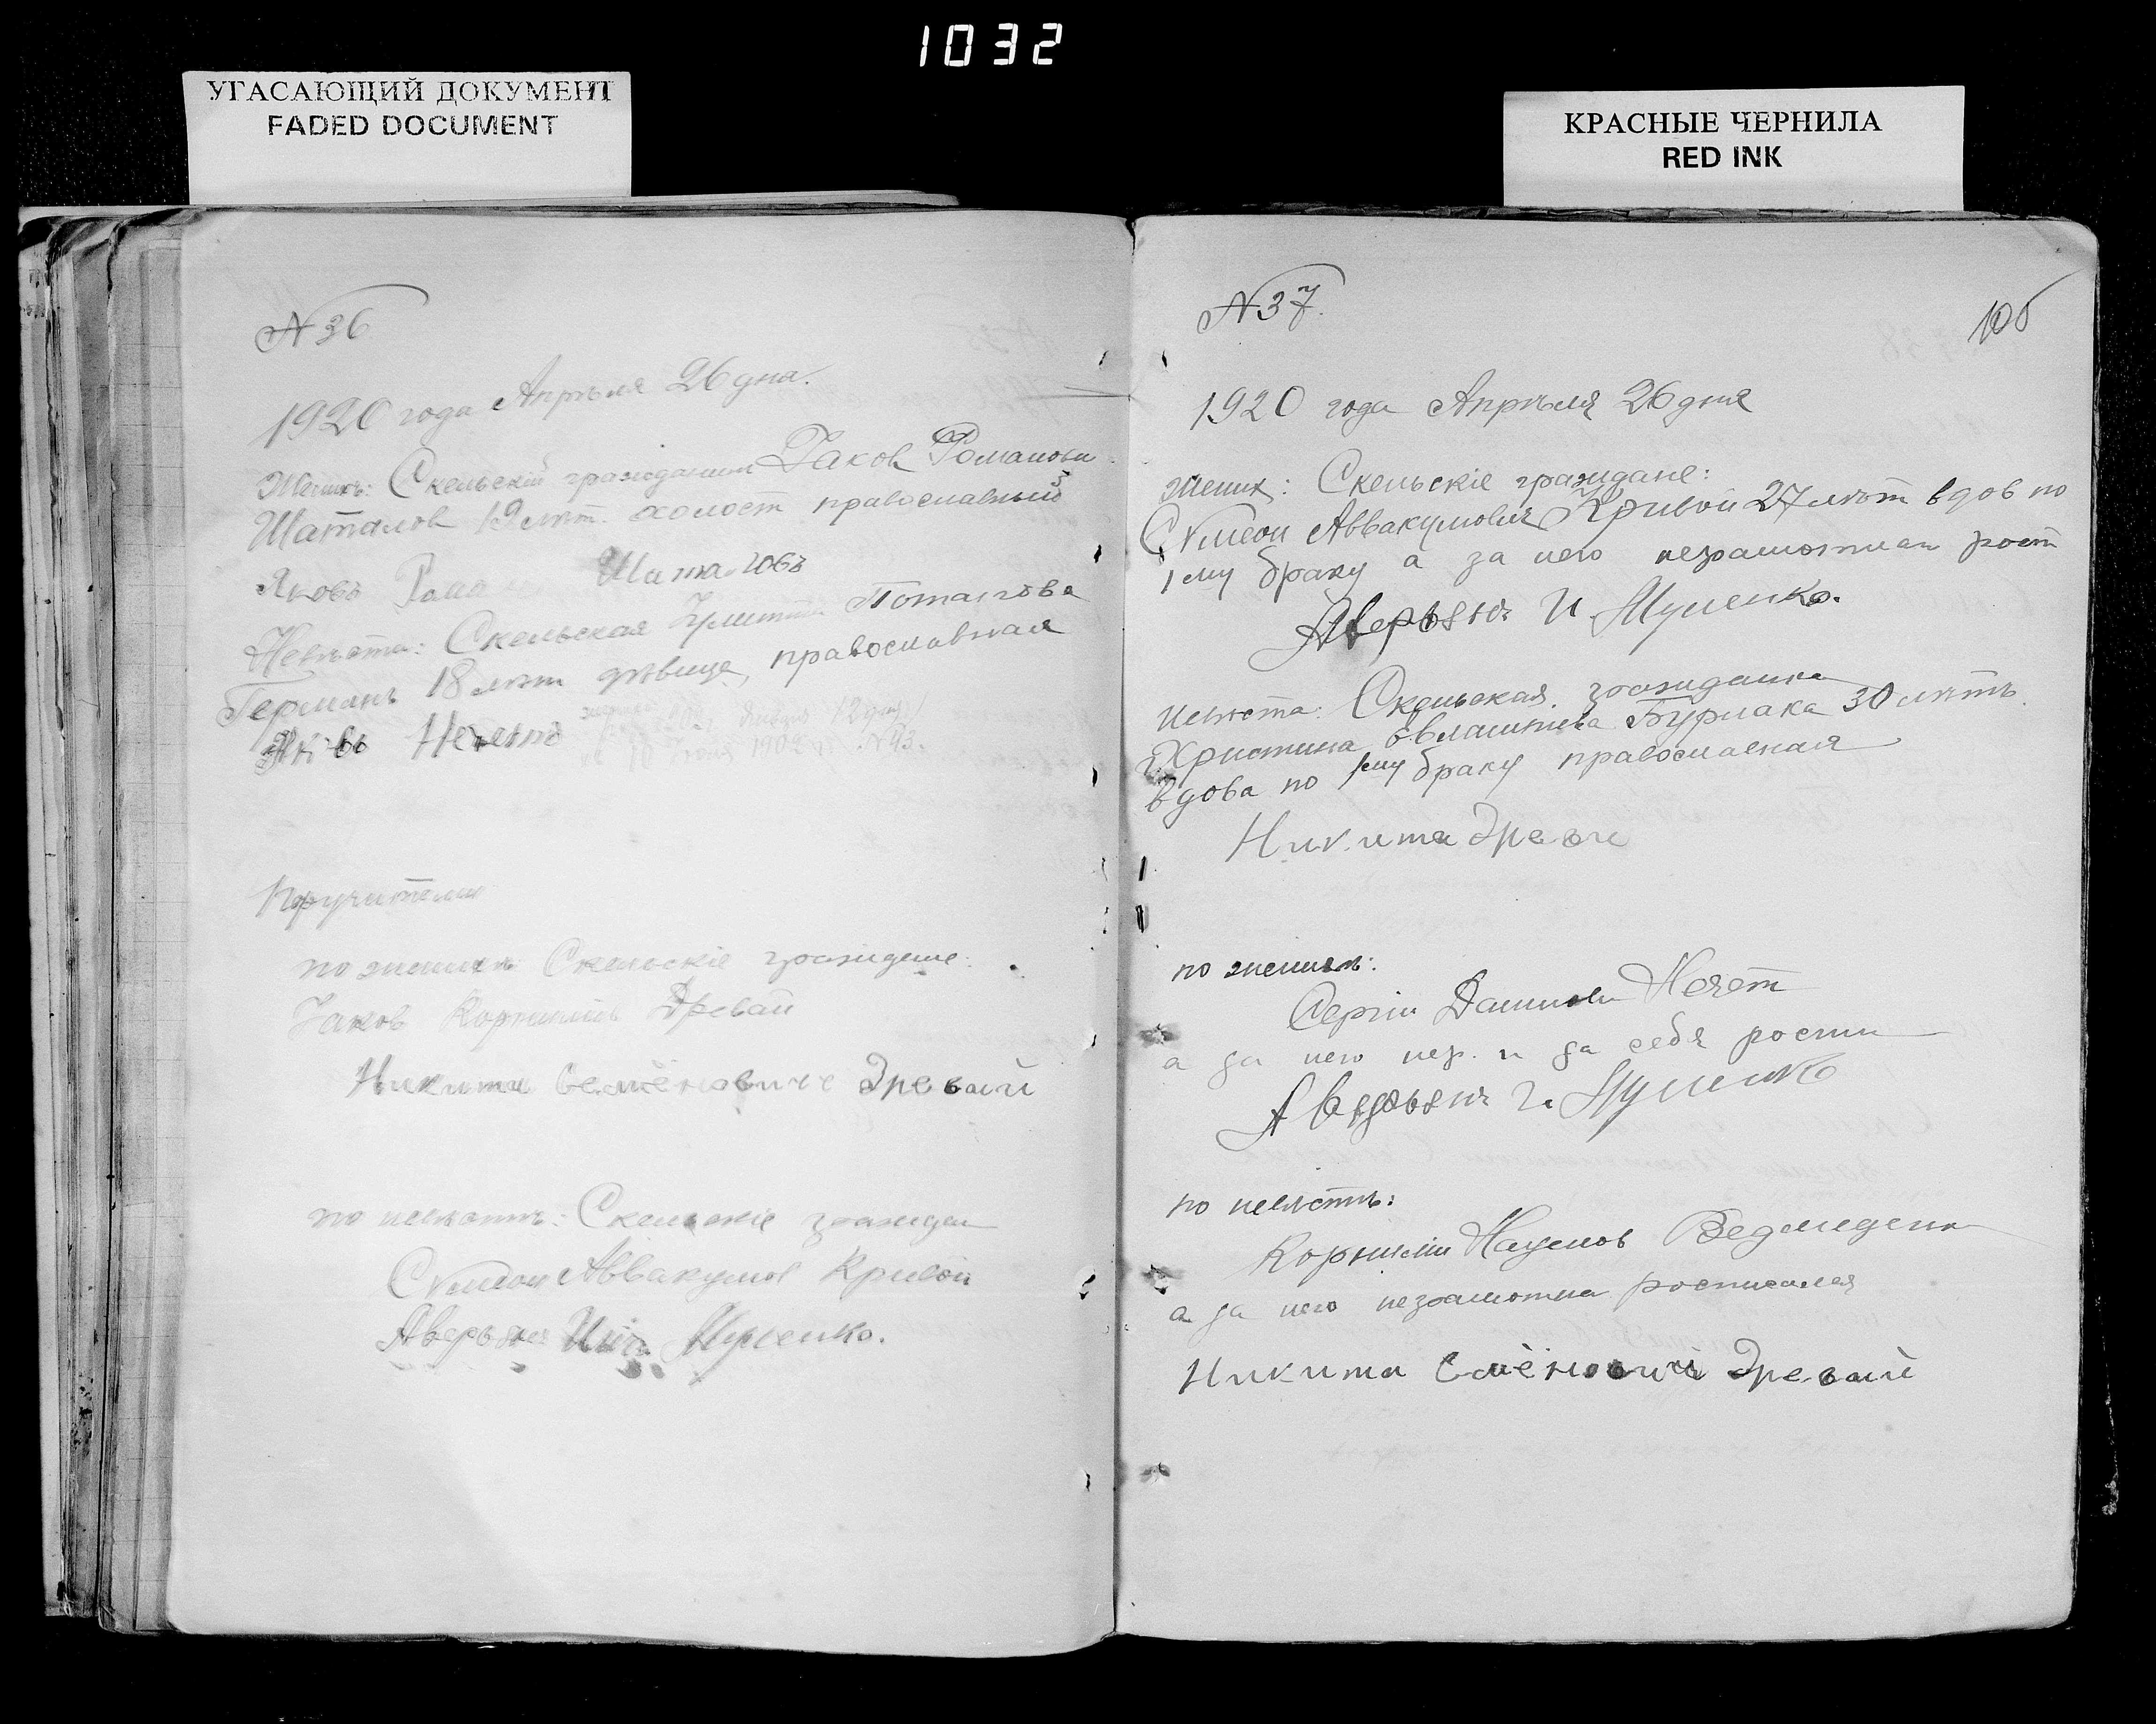 1032
УГАСАЮЩИЙ ДОКУМЕНТ
FADED DOCUMENT
КРАСНЫЕ ЧЕРНИЛА
RED INK
N 36
1920 года Апрѣля 26 дня.
Женихъ: Скельскій гражданин Іаков Романови
Шаталов 19 лѣт. холост православный
Яковъ Рома Шаталовъ
Невѣста: Скельская Потапова
Германъ 18 лѣт дѣвица, православная
Нечетъ
Января 12 дня
10 1902 г. N 43.
Поручители
по женихѣ Скельскіе граждане:
Іаков Корнилів Древаль
Никита Семёновичъ Древаль
по невѣстѣ: Скельскіе граждан
Сѵмеон Аввакумов Кривой
Аверьян Муленко.
N 37.
105
1920 года Апрѣля 26 дня
жених: Скельскіе граждане:
Сѵмеон Аввакумович Кривой 27 лѣт вдов по
1му браку а за него неграмотнаго рост
Аверьян И. Муленко.
невѣста: Скельская гражданка
Христина Евлампіева Бурлака 30 лѣтъ
вдова по 1му браку православная
Никита Древаль
по женихѣ:
Сергій Данилови Нечет
а за него нег. и за себя роспи
Аверьян И. Муленко
по невѣстѣ:
Корнилій Наумов Ведмеденко
а за него неграмотна росписался
Никита Семёновичъ Древаль